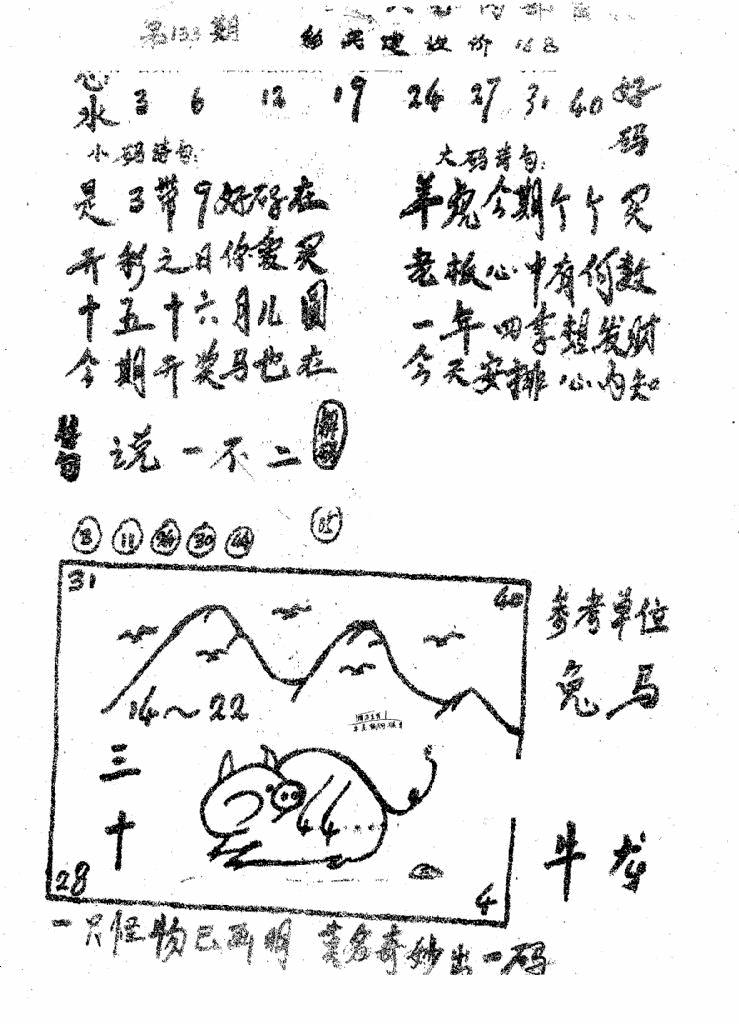 第133期
心水 3 6 12 19 24 27 31 40 好码
小码诗句:
是3带9好码在
开彩之日你爱买
十五十六月儿圆
今期开奖马也在
大码诗句:
羊虎今期个个买
老板心中有何数
一年四季想发财
今天安排心内知
说一不二
11 30 44
31 40
14～22
三十
28 4
参考单位
兔马
牛龙
一只怪物已画明 莫名奇妙出一码